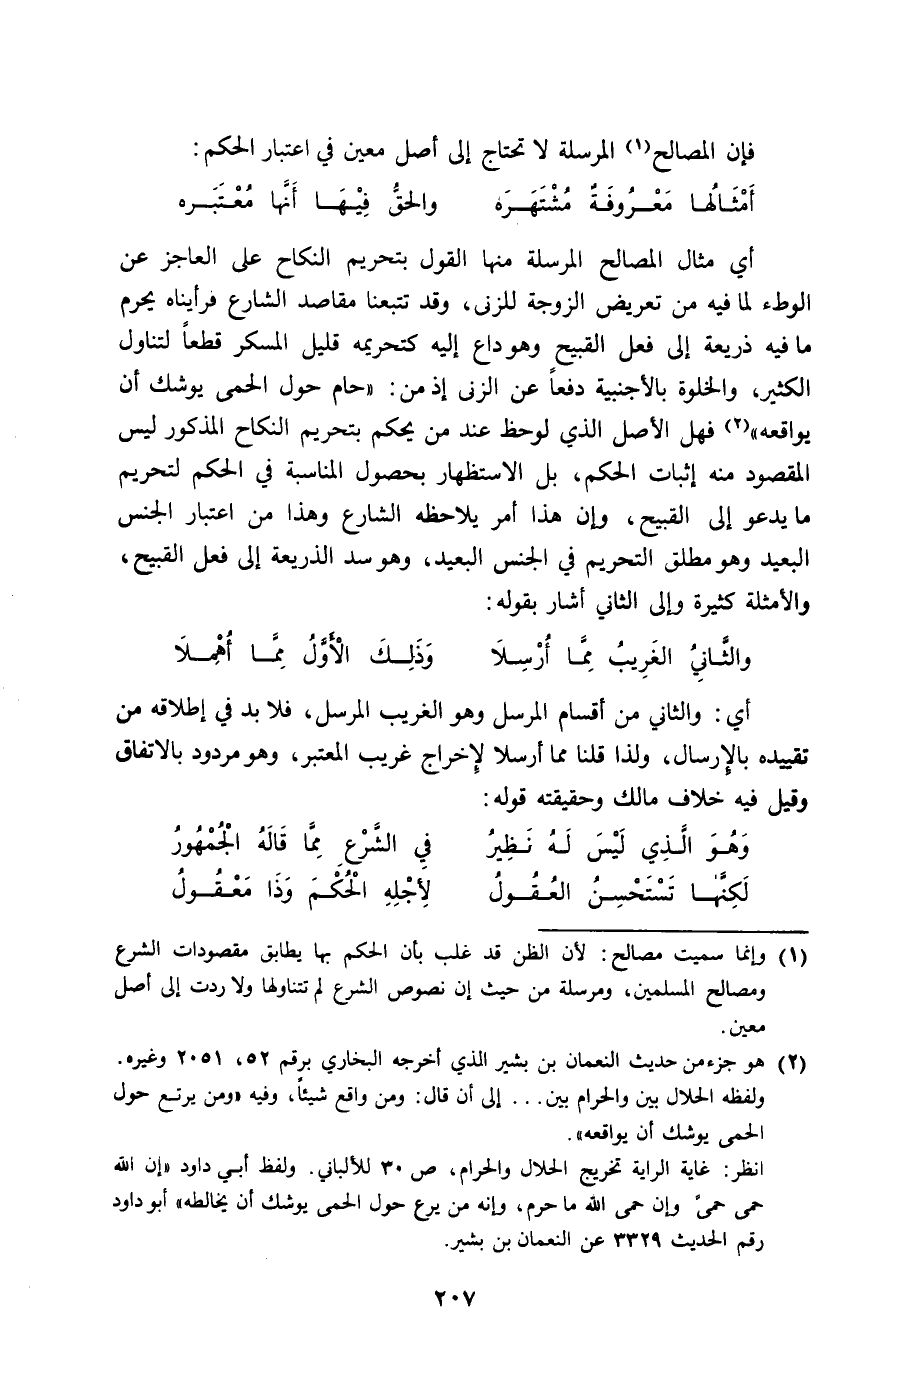 فإن المصالح(١) المرسلة لا تحتاج إلى أصل معين في اعتبار الحكم:
أَمْثَالُها مَعْرُوفَةٌ مُشْتَهَرَه والحقُّ فِيْهَا أَنَّها مُعْتَبَره
أي مثال المصالح المرسلة منها القول بتحريم النكاح على العاجز عن
الوطء لما فيه من تعريض الزوجة للزنى، وقد تتبعنا مقاصد الشارع فرأيناه يحرم
ما فيه ذريعة إلى فعل القبيح وهو داع إليه كتحريمه قليل المسكر قطعاً لتناول
الكثير، والخلوة بالأجنبية دفعاً عن الزنى إذ من: «حام حول الحمى يوشك أن
يواقعه»(٢) فهل الأصل الذي لوحظ عند من يحكم بتحريم النكاح المذكور ليس
المقصود منه إثبات الحكم، بل الاستظهار بحصول المناسبة في الحكم لتحريم
ما يدعو إلى القبيح، وإن هذا أمر يلاحظه الشارع وهذا من اعتبار الجنس
البعيد وهو مطلق التحريم في الجنس البعيد، وهو سد الذريعة إلى فعل القبيح،
والأمثلة كثيرة وإلى الثاني أشار بقوله:
والثَّانيُ الغَرِيبُ مِمَّا أُرْسِلَا وَذَلِكَ الْأَوَّلُ مِمَّا أُهْمِلَا
أي: والثاني من أقسام المرسل وهو الغريب المرسل، فلا بد في إطلاقه من
تقييده بالإرسال، ولذا قلنا مما أرسلا لإخراج غريب المعتبر، وهو مردود بالاتفاق
وقيل فيه خلاف مالك وحقيقته قوله:
وَهُوَ الَّذِي لَيْسَ لَهُ نَظِيرُ فِي الشَّرْعِ مِمَّا قَالَهُ الْجُمْهُورُ
لَكِنَّها تَسْتَحْسِنُ العُقُولُ لِأَجْلِهِ الْحُكْمَ وَذَا مَعْقُولُ
(١) وإنما سميت مصالح: لأن الظن قد غلب بأن الحكم بها يطابق مقصودات الشرع
ومصالح المسلمين، ومرسلة من حيث إن نصوص الشرع لم تتناولها ولا ردت إلى أصل
معين.
(٢) هو جزء من حديث النعمان بن بشير الذي أخرجه البخاري برقم ٥٢، ٢٠٥١ وغيره.
ولفظه الحلال بين والحرام بين... إلى أن قال: ومن واقع شيئاً، وفيه «ومن يرتع حول
الحمى يوشك أن يواقعه».
انظر: غاية الراية تخريج الحلال والحرام، ص ٣٠ للألباني. ولفظ أبي داود «إن الله
حمى حمىً وإن حمى الله ما حرم، وإنه من يرع حول الحمى يوشك أن يخالطه» أبو داود
رقم الحديث ٣٣٢٩ عن النعمان بن بشير.
٢٠٧